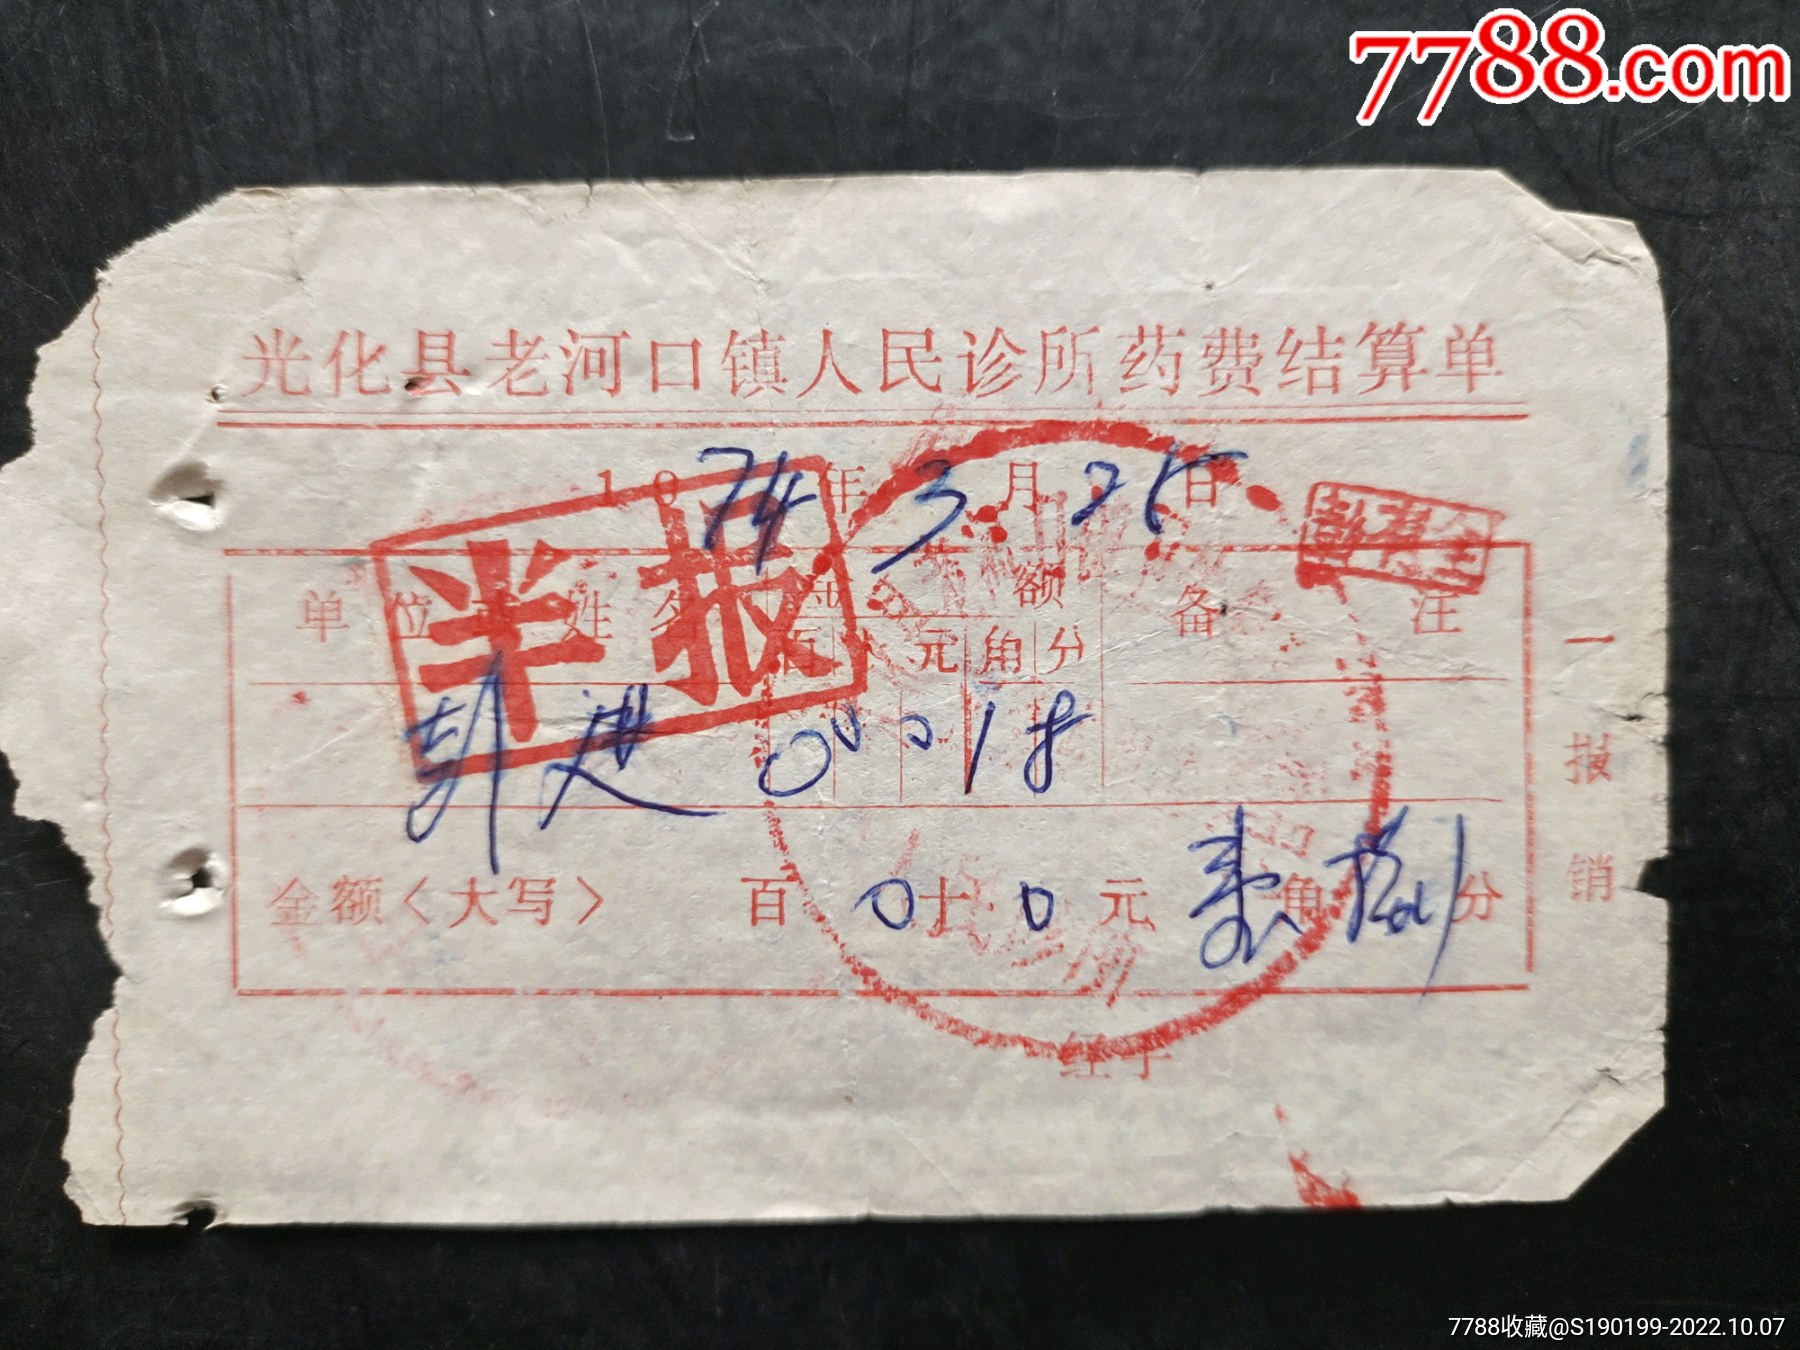 7788.com
光化县老河口镇人民诊所药费结算单
1974年3月25日
半报
单位 姓名 金额 备注
百 元 角 分
彭进 0 0 0 1 8
金额〈大写〉 百 0十 0元 壹角 捌分
一报销
经手
7788收藏@S190199-2022.10.07